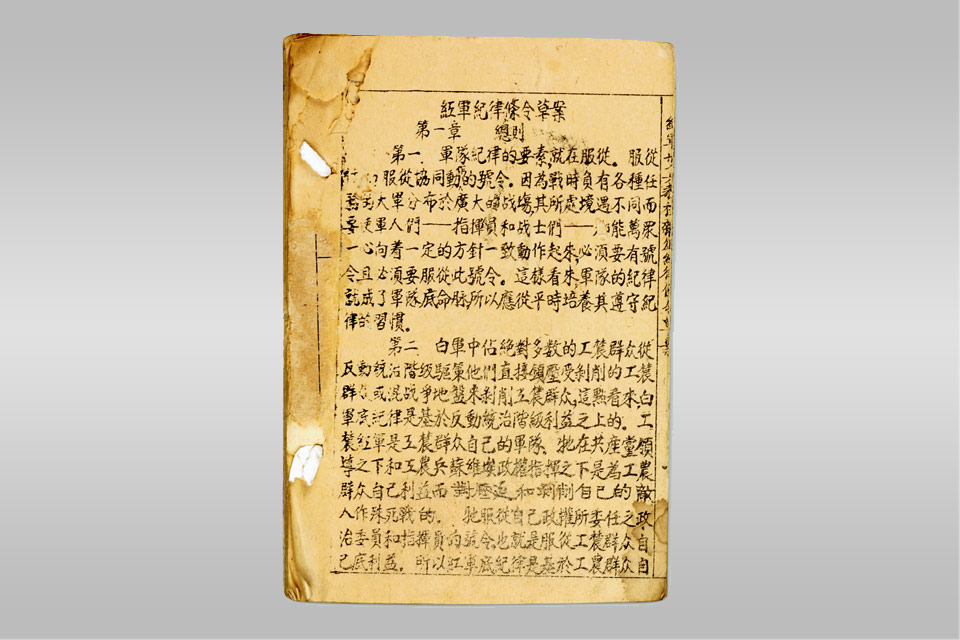 紅軍紀律條令草案
第一章 總則
第一 軍隊紀律的要素,就在服從。服從
服從協同動的號令。因為戰時負有各種任
大軍分布於廣大的战塲,其所處境遇不同而
要使軍人們——指揮員和战士們——能萬眾
一心向着一定的方針一致動作起來,必須要有號
令且必須要服從此號令。這樣看來,軍隊的紀律
就成了軍隊底命脉,所以應從平時培養其遵守紀
律的習慣。
第二 白軍中佔絕對多数的工農群众從
反動統治階級驅策他們直接鎮壓受剝削的工農
群众或混战爭地盤來剝削工農群众,這點看來,白
軍底紀律是基於反動統治階級利益之上的。工
農紅軍是工農群众自己的軍隊。牠在共産黨領
導之下和工農兵蘇維埃政權指揮之下是為工農
群众自己利益而對壓迫和剝削自己的敵
人作殊死戰的。牠服從自己政權所委任之政
治委員和指揮員的號令,也就是服從工農群众自
己底利益。所以紅軍底紀律是基於工農群众自